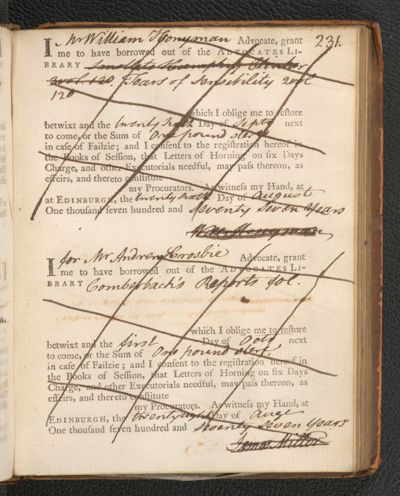 231.
I Mr William Honyman Advocate, grant
me to have borrowed out of the ADVOCATES LI-
BRARY Smollets Humphry Clinker
2 vol. 120. Tears of Sensibility 2 vol
120
which I oblige me to reſtore
betwixt and the twenty sixth Day of Septr next
to come, or the Sum of One pound sterl.
in caſe of Failzie; and I conſent to the regiſtration hereof in
the Books of Seſſion, that Letters of Horning on ſix Days
Charge, and other Executorials needful, may paſs thereon, as
effeirs, and thereto conſtitute
my Procurators. As witneſs my Hand, at
at EDINBURGH, the twenty sixth Day of August
One thouſand ſeven hundred and seventy Seven Years
Will: Honyman
I for Mr Andrew Crosbie Advocate, grant
me to have borrowed out of the ADVOCATES LI-
BRARY Comberbach's Reports fol.
which I oblige me to reſtore
betwixt and the first Day of Octr next
to come, or the Sum of One pound sterl.
in caſe of Failzie; and I conſent to the regiſtration hereof in
the Books of Seſſion, that Letters of Horning on ſix Days
Charge, and other Executorials needful, may paſs thereon, as
effeirs, and thereto conſtitute
my Procurators. As witneſs my Hand, at
EDINBURGH, the twenty eight Day of Augt
One thouſand ſeven hundred and Seventy Seven Years
James